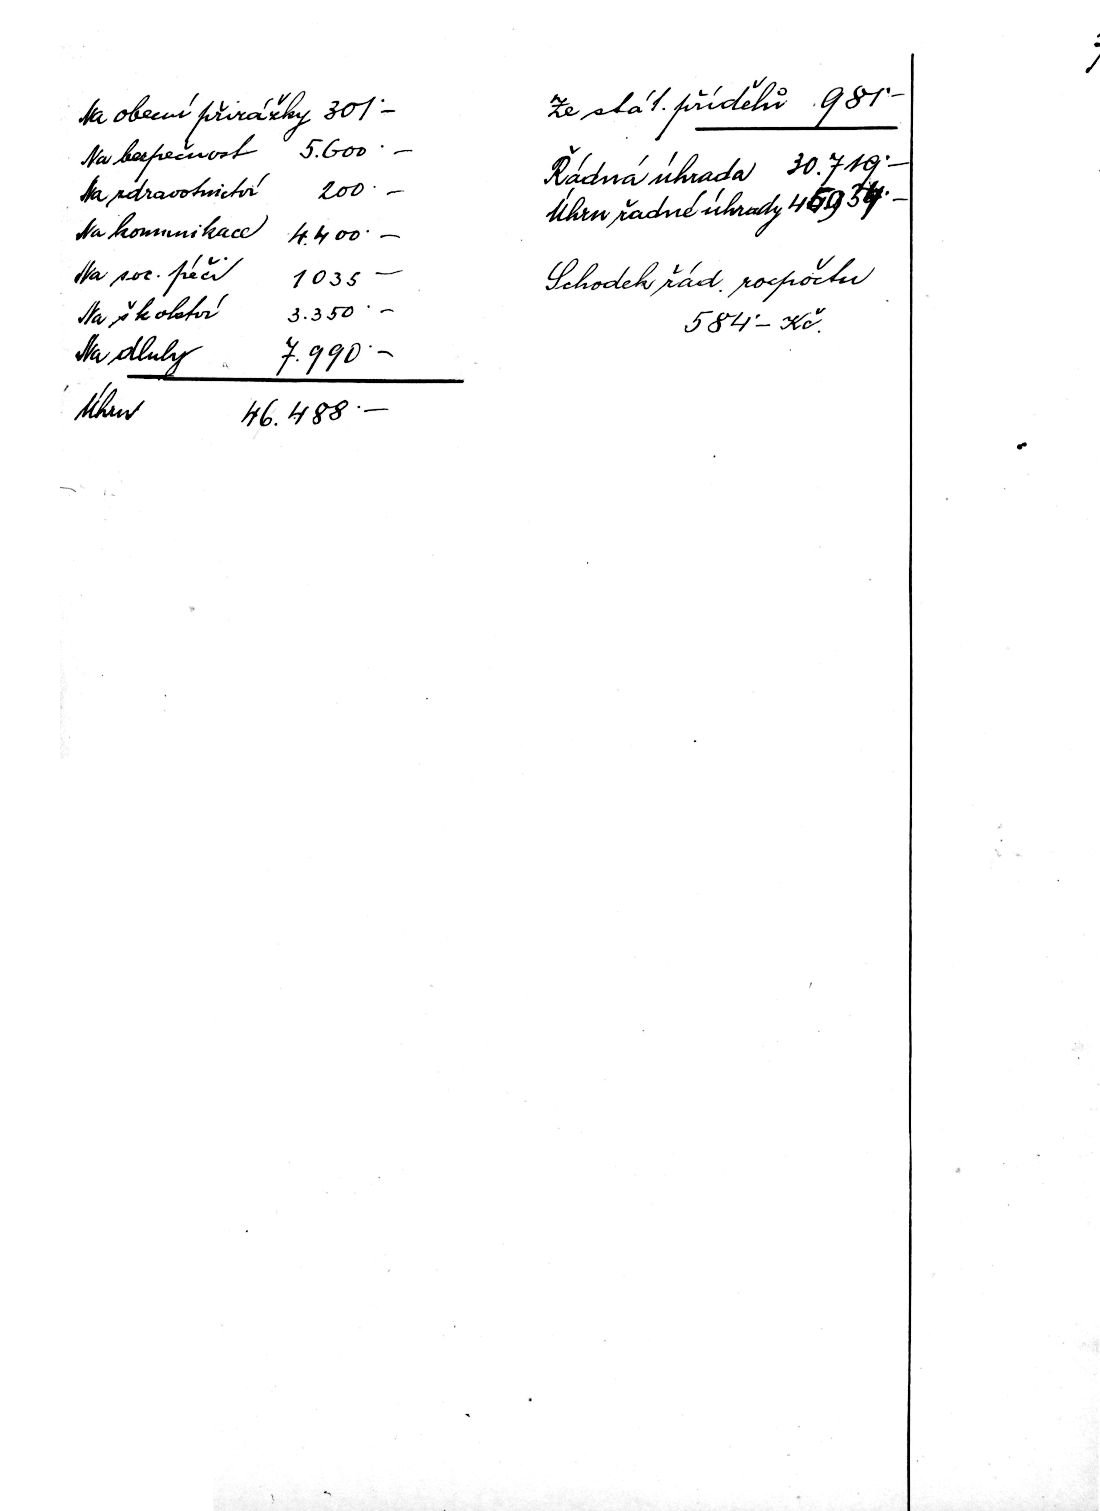 Na obecní přirážky 301·—
Na bezpečnost 5.600·—
Na zdravotnictví 200·—
Na komunikace 4.400·—
Na soc. péči 1035 —
Na školství 3.350·—
Na dluhy 7.990·—
Úhrn 46.488·—
Ze stát. přídělů 981·—
Řádná úhrada 30.719·—
Úhrn řadné úhrady
Schodek řád. rozpočtu
584·— Kč.